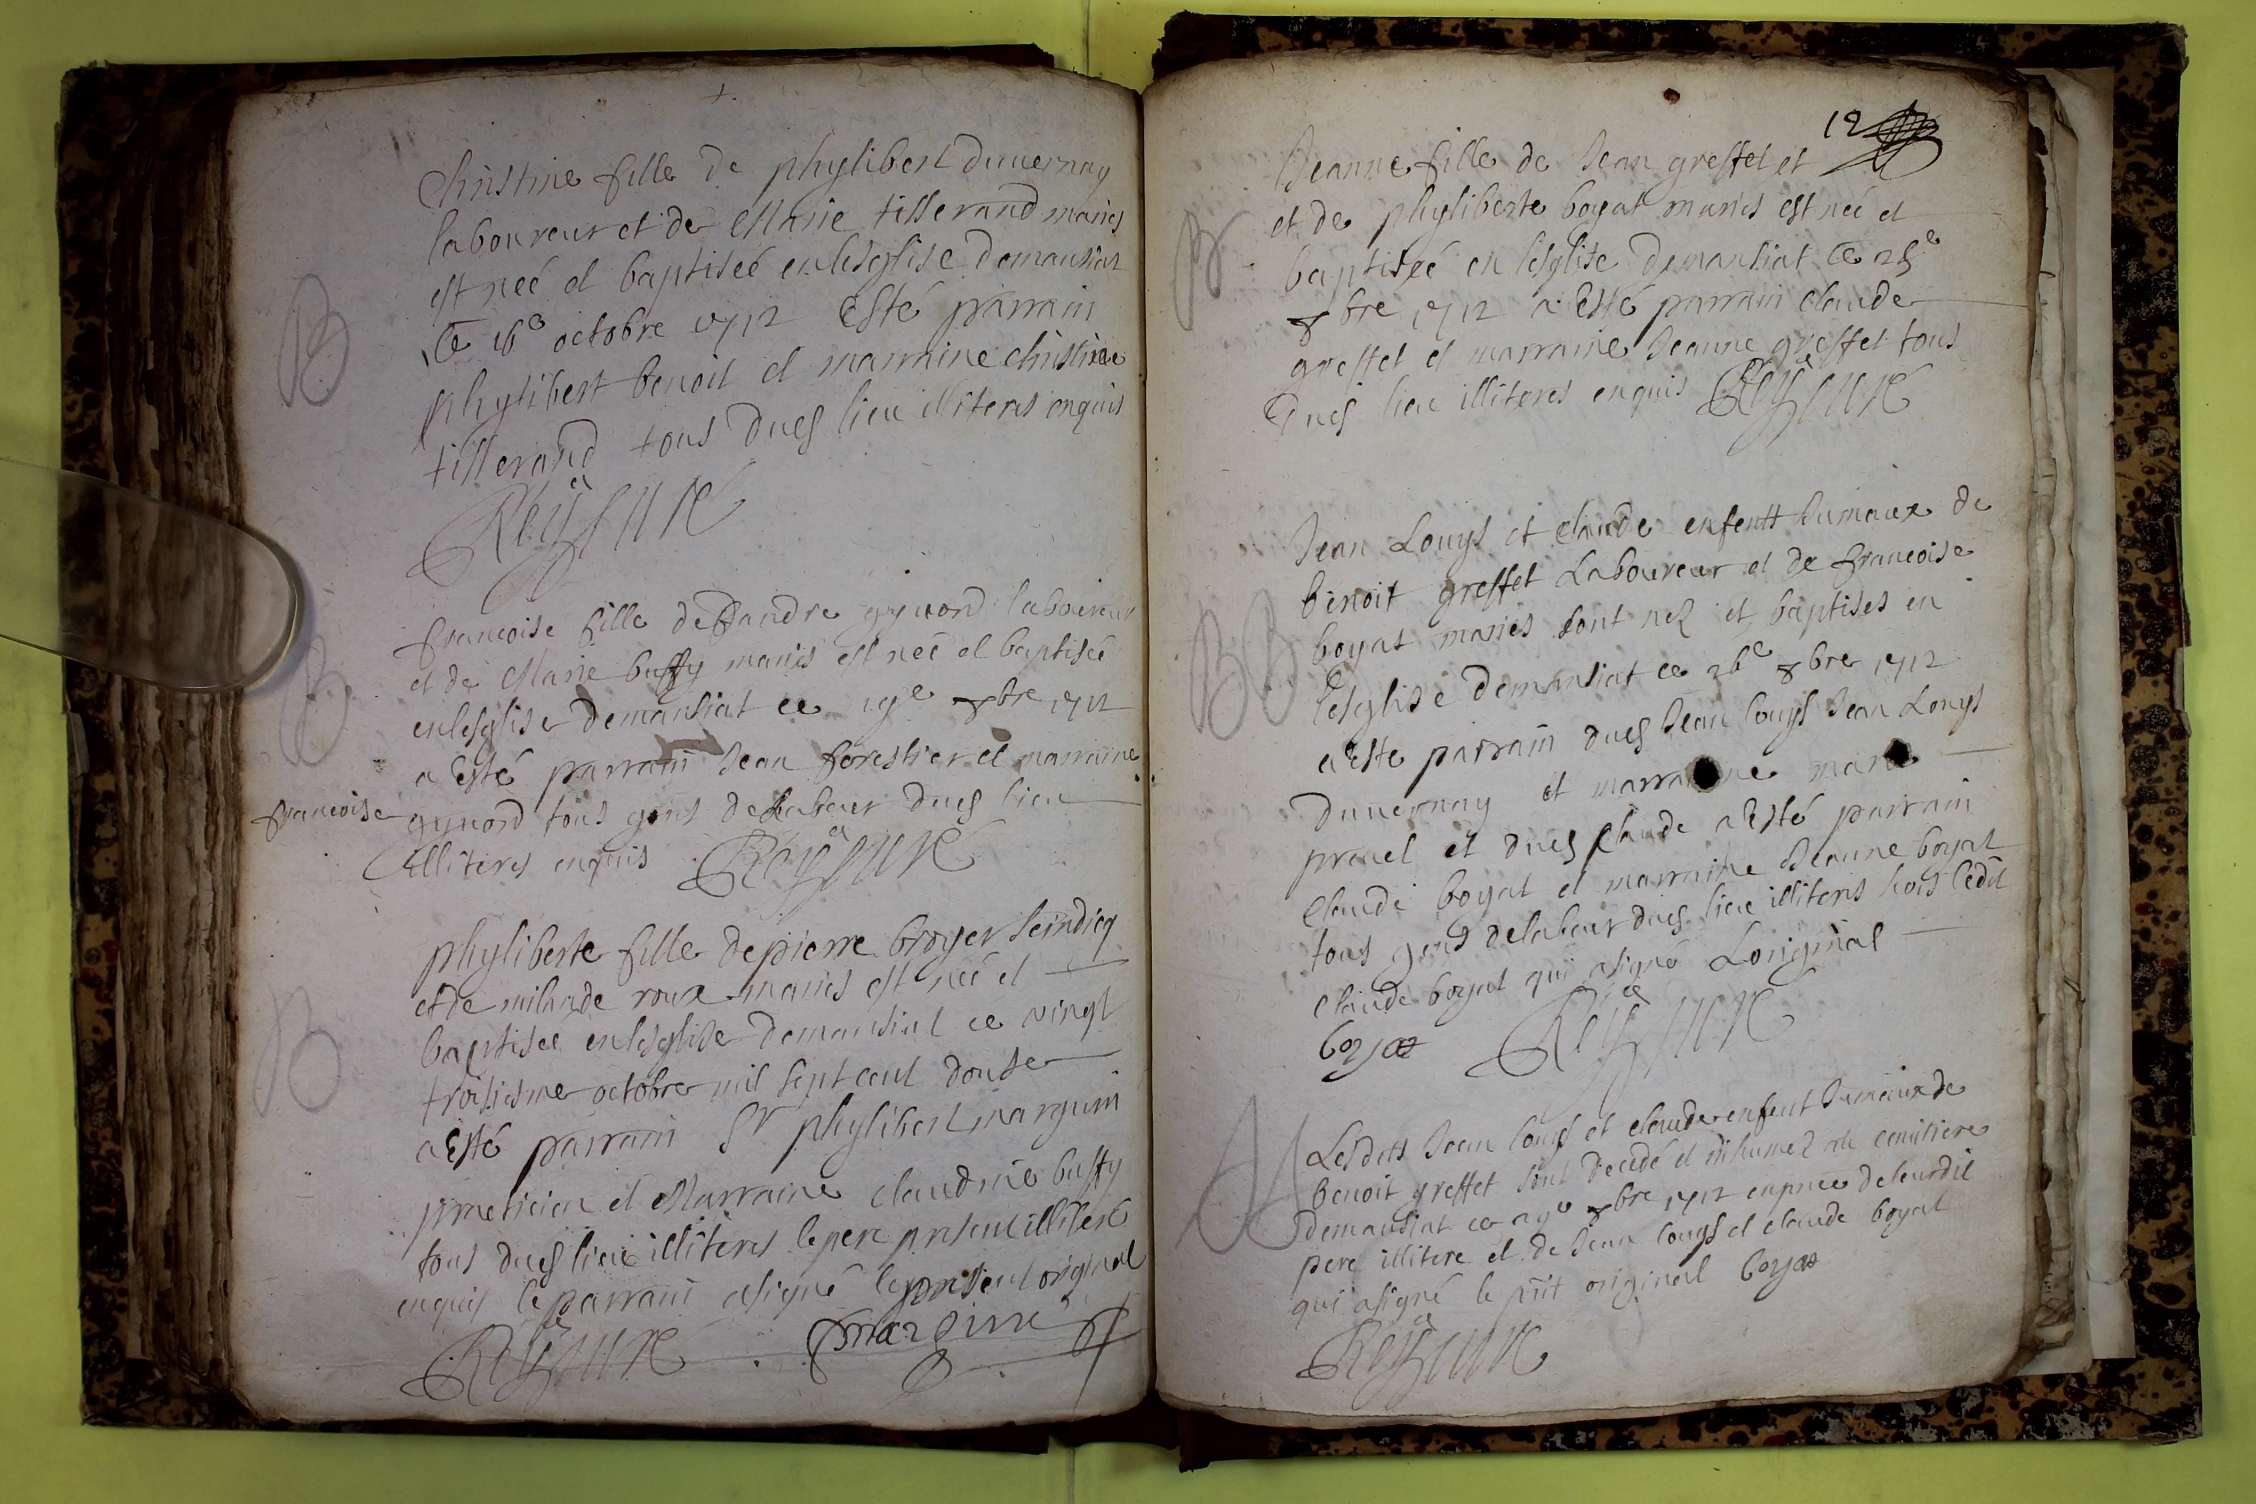 Christine fille de phylibert duvernay
laboureur et de Marie tisserand maries
est neé et baptiseé en lesglise demansiat
ce 16e octobre 1712 Esté parrain
phylibert benoit et marraine christine
tisserand tous dues lieu illiteres enquis
Reyssure
B
francoise fille de gyvord laboureur
et de Marie buffy maries est neé et baptiseé
en lesglise demansiat ce 19e 8bre 1712
a Esté parrain Jean forestier et marraine
francoise gyvord tous gens de labeur dues lieu
illiteres enquis Reyssure
B
phyliberte fille de pierre broyer seindicq
et de roux maries est neé et
baptiseé en lesglise demansiat ce vingt
troisiesme octobre mil sept cent douse
a Esté parrain Sr phylibert marguin
practicien et Marraine claudine buffy
tous dues lieu illiteres le pere present illiteré
enquis le parrain a signé le present original
Reyssure
B
12
Jeanne fille de Jean greffet et
et de phyliberte boyat maries est neé et
baptiseé en lesglise demansiat ce 25e
8bre 1712 a Esté parrain claude
greffet et marraine Jeanne greffet tous
dues lieu illiteres enquis Reyssure
B
Jean Louys et claude enfentt Jumaux de
benoit greffet Laboureur et de francoise
boyat maries sont nez et baptises en
lesglise demansiat ce 26e 8bre 1712
a Este parrain dues Jean louys Jean Louys
duvernay et marraine marie
pravel et dues claude a Esté parrain
claude boyat et marraine Jeanne boyat
tous gens de labeur dues lieu illiteres hors ledit
claude boyat qui a signé Loriginal
boyat Reyssure
B B
Lesdits Jean louys et claude enfent Jumaux de
benoit greffet sont decedé et inhumez au cemitiere
demansiat ce 29e 8bre 1712 en pnce de leurdit
pere illitere et de Jean louys et claude boyat
qui a signé le pnt original boyat
Reyssure
M